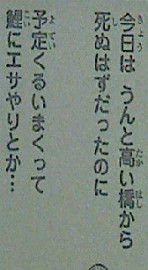 今日は うんと高い橋から
死ぬはずだったのに
予定くるいまくって
鯉にエサやりとか…